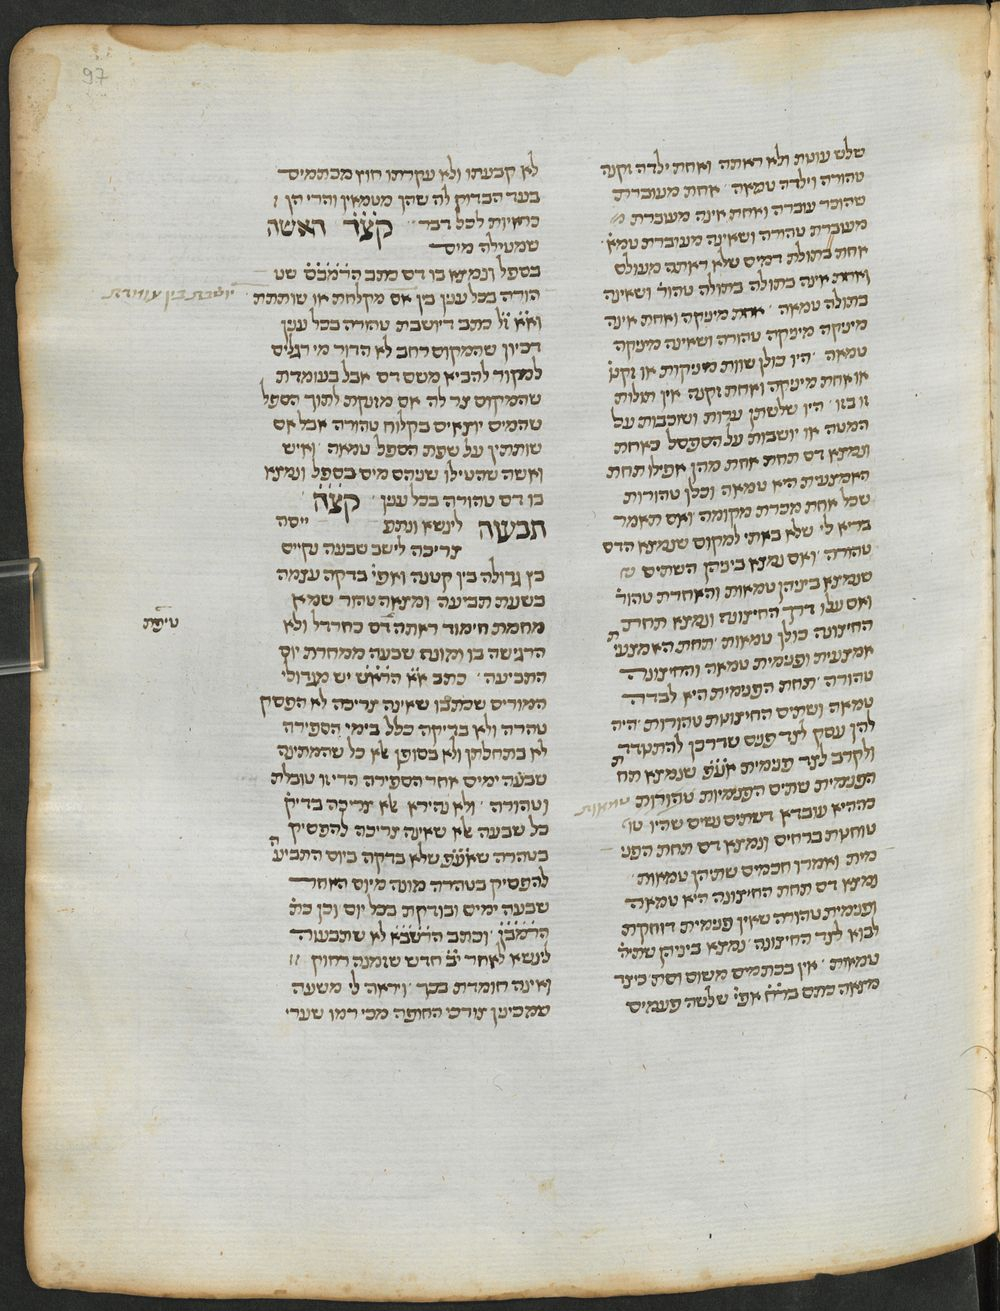 97
שלש עונות ולא ראתה ואחת ילדה זקנה
טהורה וילדה טמאה אחת מעוברת
שהוכר עוברה ואחת אינה מעוברת
מעוברת טהורה ושאינה מעוברת טמא
אחת בתולת דמים שלא ראתה מעולם
ואחת אינה בתולה בתולה טהור ושאינה
בתולה טמאה אחת מיניקה ואחת אינה
מיניקה מיניקה טהורה ושאינה מיניקה
טמאה היו כולן שוות מניקות או זקנו
או אחת מיניקה ואחת זקנה אין תולות
זו בזו היו שלשתן ערות ושוכבות על
המטה או יושבות על הספסל כאחת
ונמצא דם תחת אחת מהן אפילו תחת
האמצעית היא טמאה וכלן טהורות
שכל אחת מכרת מקומה ואם תאמר
בריא לי שלא באתי למקום שנמצא הדם
טהורה ואם נמצא ביניהן השתים
שנמצא ביניהן טמאות והאחדת טהור
ואם עלו דרך החיצונה ונמצא תחת
החיצונה כולן טמאות תחת האמצעי ת
אמצעית ופנימית טמאה והחיצונה
טהורה תחת הפנימית היא לבדה
טמאה ושתים החיצונות טהורות היה
להן עסק לצד פנים שדרכן להתעדד
ולקרב לצד פנימית אע״פ שנמצא תח ת
הפנימית שתים הפנימיות טהורות טמאות
כההיא עובדא דשתים נשים שהיו טו
טוחנות ברחים ונמצא דם תחת הפני
מית ואמרו חכמים שתיהן טמאות
נמצא דם תחת החיצונה היא טמאה
ופנימית טהורה שאין פנימית דוחקת
לבוא לצד החיצונה נמצא ביניהן שתיה
טמאות אין בכתמים משום וסת כיצד
מצאה כתם בר״ח אפי׳ שלשה פעמים
לא קבעתו ולא עקרתו חוץ מכתמים
בעד הבדוק לה שהן מטמאין והרי הן
כראיות לכל דבר קצ״ד ראשה
שמטילה מים
בספל ונמצא בו דם כתב הרמב״ם שט
הורה בכל ענין בין אם מקלחת או שותתת
יושבת בין עומדת
וא״א ז״ל כתב דיושבת טהורה בכל ענין
דכיון שהמקום רחב לא הדור מי רגלים
למקור להביא משם דם אבל בעומדת
שהמקום צר לה אם מזנקת לתוך הספל
שהמים יוצאים בקלוח טהורה אבל אם
שותתין על שפת הספל טמאה ואיש
ואשה שהטילו שניהם מים בספל ונמצא
בו דם טהורה בכל ענין קצ״ה
תבעוה לינשא ונתפ ייסה
צריכה לישב שבעה נקיים
בין גדולה בין קטנה ואפי׳ בדקה עצמה
בשעת תביעה ומצאה טהור שמא
מחמת חימוד ראתה דם כחרדל ולא
טיפת
הרגישה בו ומונה שבעה ממחרת יום
התביעה כתב א״א הרא״ש יש מגדולי
המורים שכתבו שאינה צריכה לא הפסק
טהרה ולא בדיקה כלל בימי הספירה
לא בתחלתן ולא בסופן אלא כל שהמתינה
שבעה ימים אחר הספירה הרי זו טובלת
וטהורה ולא נהירא אלא צריכה בדיק
כל שבעה אלא שאינה צריכה להפסיק
בטהרה שאע״פ שלא בדקה ביום התביע ה
להפסיק בטהרה מונה מיום האחר
שבעה ימים ובודקת בכל יום וכן כת
הרמב״ן וכתב הרשב״א לא שתבעוה
לינשא לאחר י״ב חדש שזמנה רחוק
ואינה חומדת בכך ויראה לי משעה
שמכינין צורכי החופה מכי רמו שערי